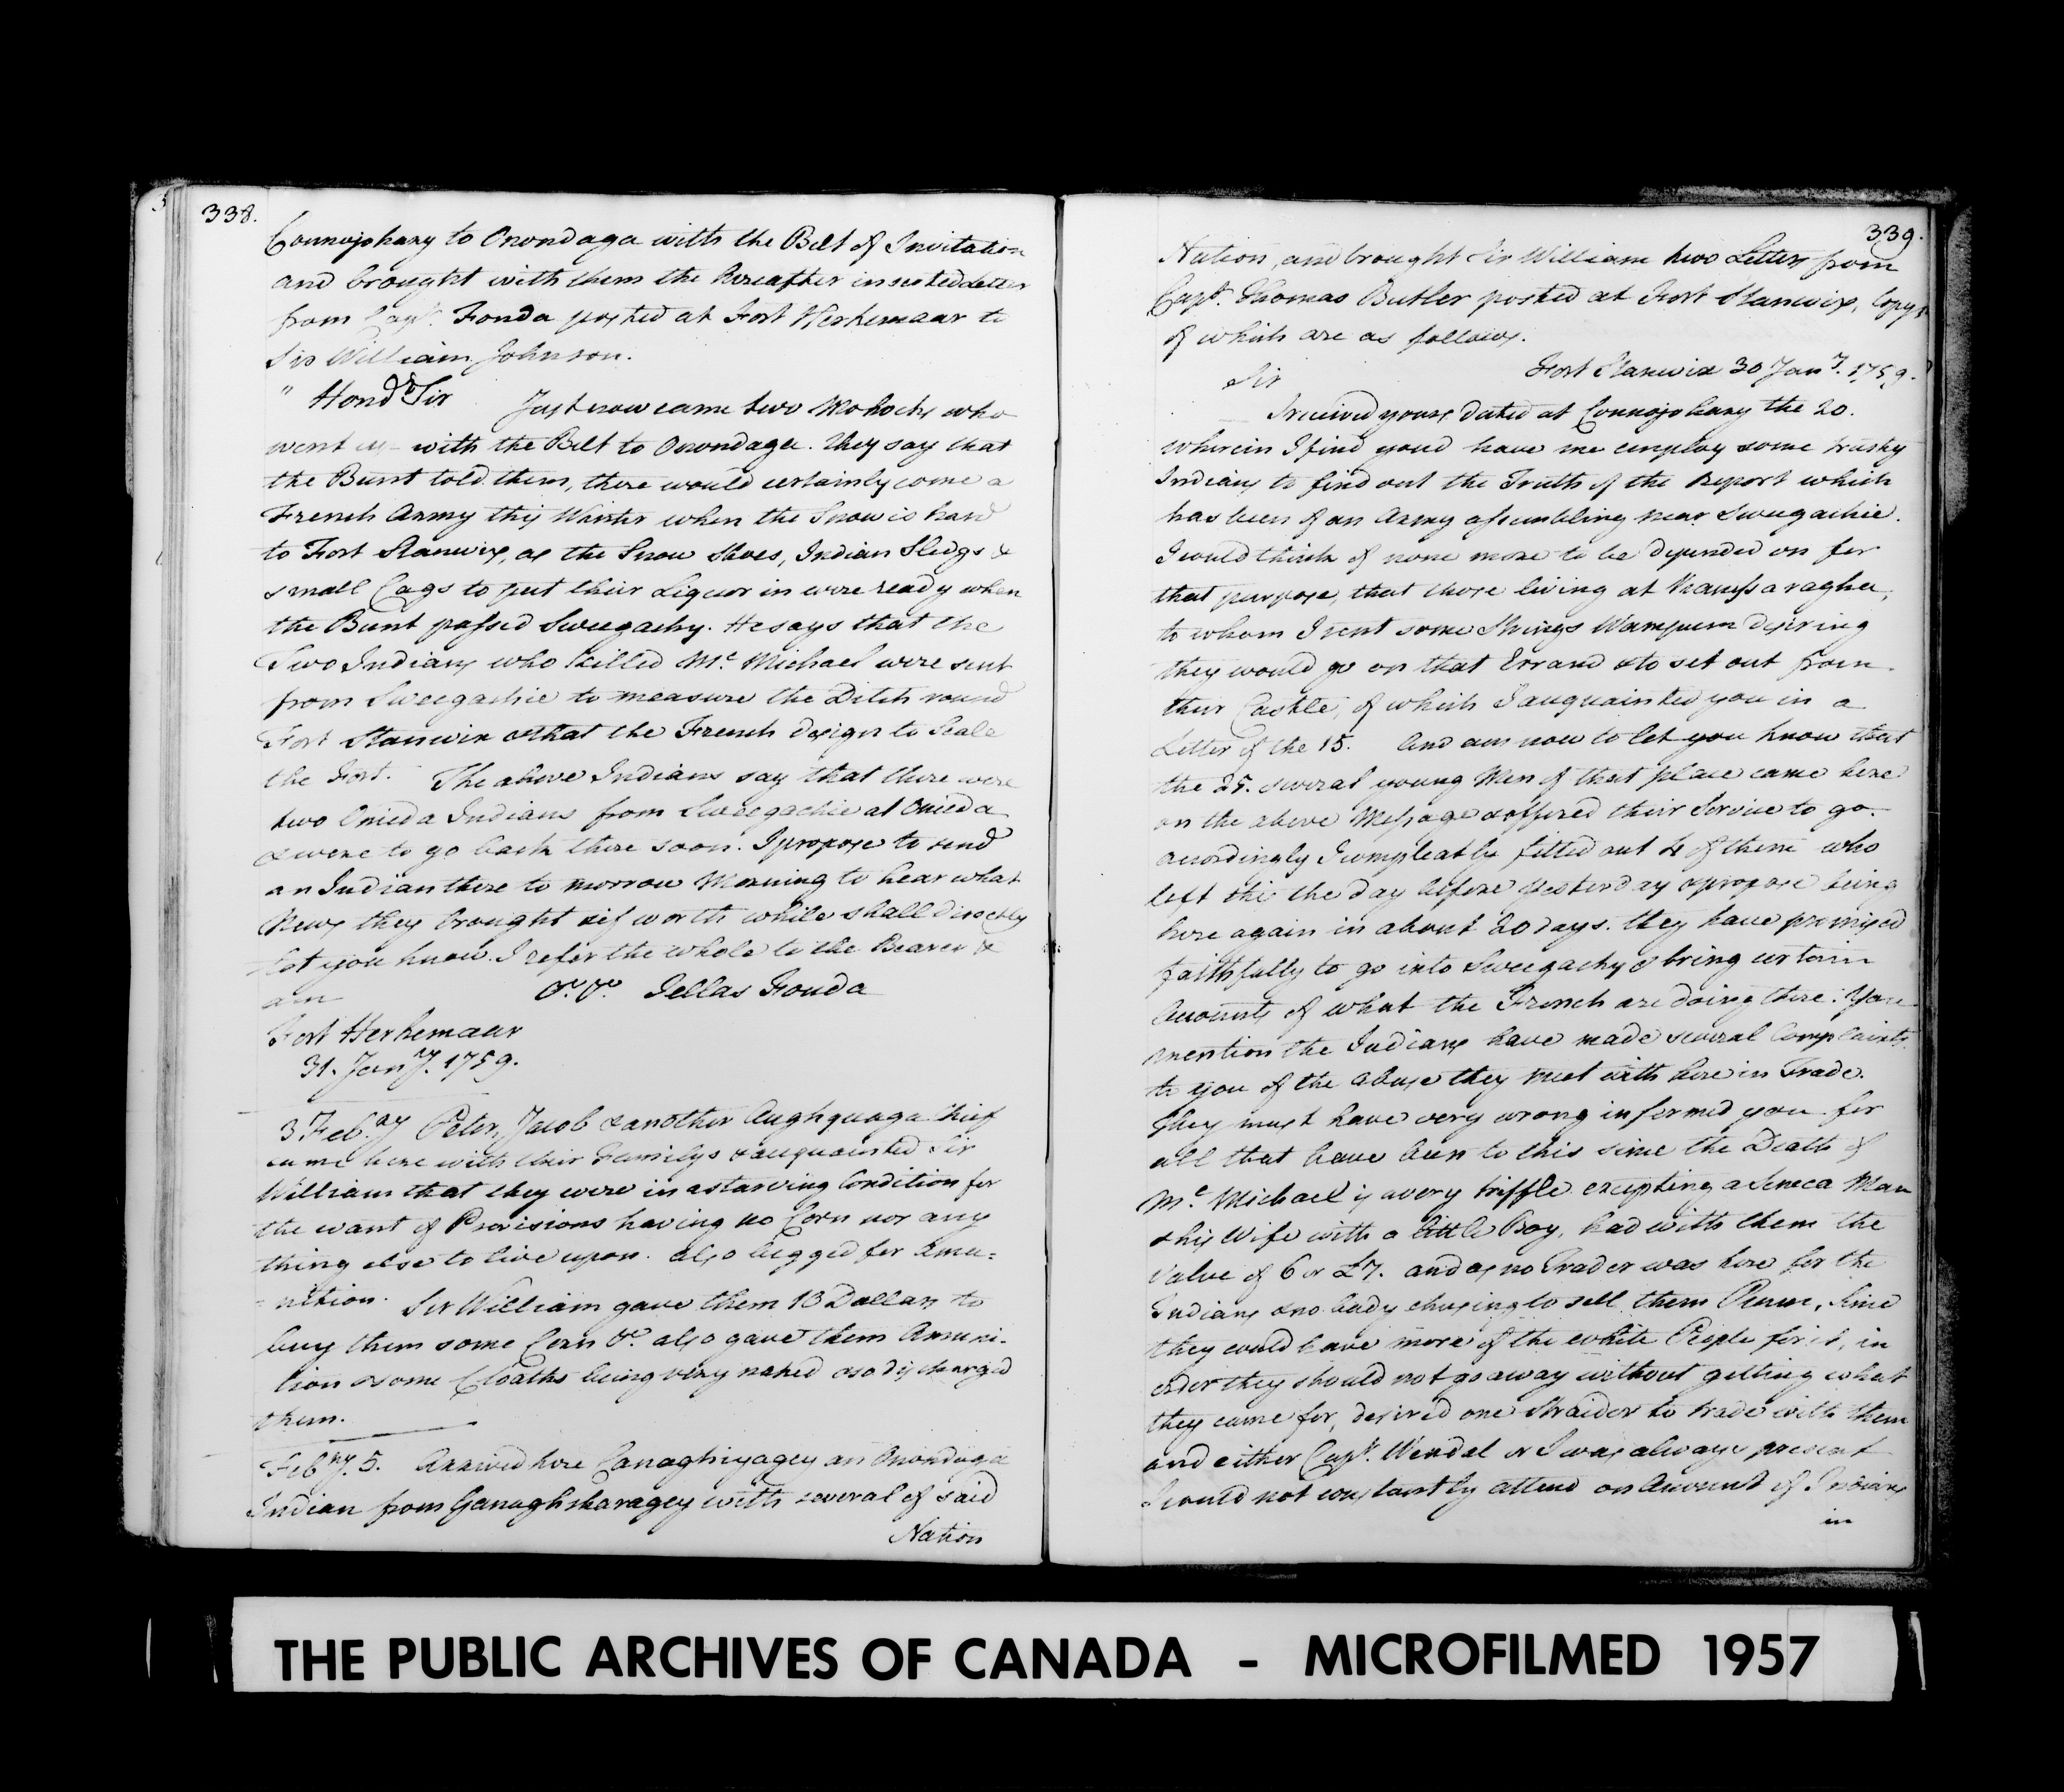 338.
Connojohary to Onondaga with the Belt of Invitation
and brought with them the hereafter inserted Letter
from Capt. Fonda posted at Fort Herkemaar to
Sir William Johnson.
" Hond. Sir Just now came two Mohocks who
went up with the Belt to Onondaga. They say that
the Bunt told them, there would certainly come a
French Army this Winter when the Snow is hard
to Fort Stanwix, as the Snow Shoes, Indian Sledgs &
small Cags to put their Liquor in were ready when
the Bunt passed Sweegachy. He says that the
Two Indians who killed Mc. Michael were sent
from Sweegachie to measure the Ditch round
Fort Stanwix & that the French design to Scale
the Fort. The above Indians say that there were
two Onieda Indians from Sweegachie at Onieda
& were to go back there soon. I propose to send
an Indian there to morrow Morning to hear what
News they brought & if worth while shall directly
let you know. I refer the whole to the Bearer &
am &c. &c. Jellas Fonda
Fort Herkemaar
31. Jany. 1759.
3 Feb.ry Peter, Jacob & another Aughquaga Chief
came here with their Familys & acquainted Sir
William that they were in a starving Condition for
the want of Provisions having no Corn nor any
thing else to live upon. also begged for Amu=
=nition. Sir William gave them 18 Dollars to
buy them some Corn &c. also gave them Amuni-
tion & some Cloaths being very naked & so discharged
them.
Febry. 5. Arrived here Canaghiyagey an Onondaga
Indian from Ganaghsharagey with several of said
Nation
339.
Nation, and brought Sir William two Letters from
Capt. Thomas Butler posted at Fort Stanwix, Copys
of which are as follows.
Fort Stanwix 30 Jany. 1759.
Sir
I received yours dated at Connojohary the 20.
wherein I find youd have me employ some trusty
Indians to find out the Truth of the Report which
has been of an Army assembling near Sweegachie.
I could think of none more to be depended on for
that purpose, that those living at
to whom I sent some Strings Wampum desiring
they would go on that Errand & to set out from
their Castle, of which I acquainted you in a
Letter of the 15. And am now to let you know that
the 25. several young Men of that place came here
on the above Message & offered their Service to go.
accordingly I compleatly fitted out 4 of them who
left this the day before yesterday & propose being
here again in about 20 days. they have promised
faithfully to go into Sweegachy & bring certain
Accounts of what the French are doing there. You
mention the Indians have made several Complaints
to you of the abuse they meet with here in Trade.
They must have very wrong informed you for
all that have been to this since the Death of
Mc. Michael is a very triffle excepting a Seneca Man
& his Wife with a little Boy, had with them the
Value of 6 or £7. and as no Trader was here for the
Indians & no body chusing to sell them Rum, since
they could have more of the white People for it, in
order they should not go away without getting what
they came for, desired one Straider to trade with them
and either Capt. Wendel or I was always present
I could not constantly attend on Account of Indians
in
THE PUBLIC ARCHIVES OF CANADA - MICROFILMED 1957